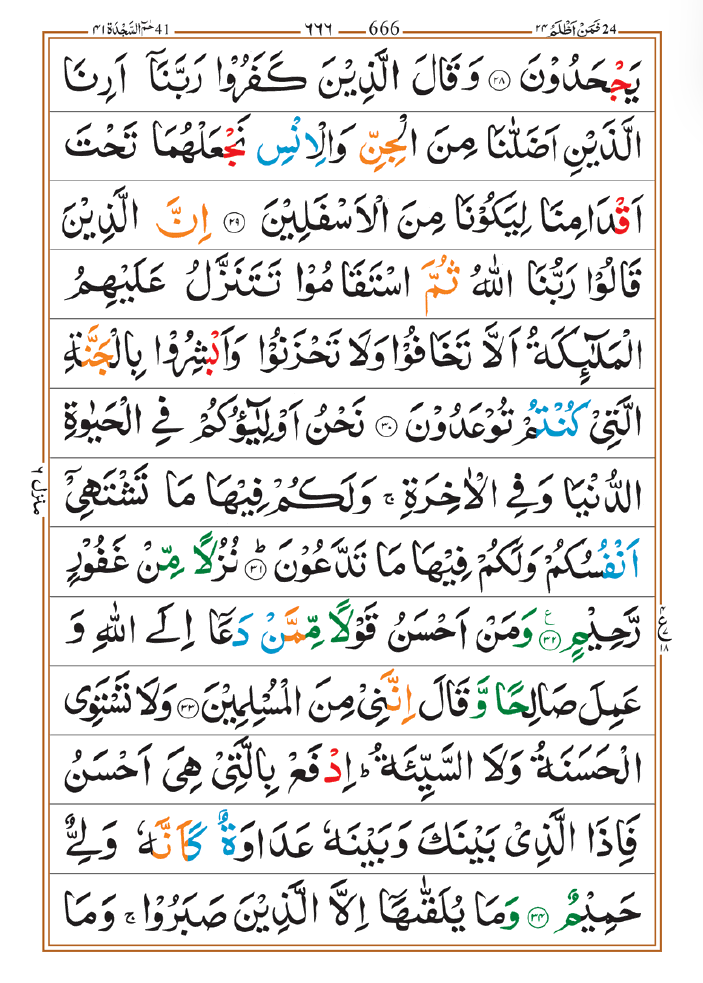 41 حٰمٓ السَّجْدَة ٤١ ٦٦٦ 666 فَمَنْ اَظْلَمُ ٢٤ 24
يَجْحَدُوْنَ ۝٢٨ وَقَالَ الَّذِيْنَ كَفَرُوْا رَبَّنَاۤ اَرِنَا
الَّذَيْنِ اَضَلّٰنَا مِنَ الْجِنِّ وَالْاِنْسِ نَجْعَلْهُمَا تَحْتَ
اَقْدَامِنَا لِيَكُوْنَا مِنَ الْاَسْفَلِيْنَ ۝٢٩ اِنَّ الَّذِيْنَ
قَالُوْا رَبُّنَا اللهُ ثُمَّ اسْتَقَامُوْا تَتَنَزَّلُ عَلَيْهِمُ
الْمَلٰٓئِكَةُ اَلَّا تَخَافُوْا وَلَا تَحْزَنُوْا وَاَبْشِرُوْا بِالْجَنَّةِ
الَّتِيْ كُنْتُمْ تُوْعَدُوْنَ ۝٣٠ نَحْنُ اَوْلِيٰٓؤُكُمْ فِي الْحَيٰوةِ
الدُّنْيَا وَفِي الْاٰخِرَةِ ۚ وَلَكُمْ فِيْهَا مَا تَشْتَهِيْۤ
اَنْفُسُكُمْ وَلَكُمْ فِيْهَا مَا تَدَّعُوْنَ ۝٣١ؕ نُزُلًا مِّنْ غَفُوْرٍ
رَّحِيْمٍ ۝٣٢ ع وَمَنْ اَحْسَنُ قَوْلًا مِّمَّنْ دَعَاۤ اِلَى اللهِ وَ
عَمِلَ صَالِحًا وَّ قَالَ اِنَّنِيْ مِنَ الْمُسْلِمِيْنَ ۝٣٣ وَلَا تَسْتَوِى
الْحَسَنَةُ وَلَا السَّيِّئَةُ ؕ اِدْفَعْ بِالَّتِيْ هِيَ اَحْسَنُ
فَاِذَا الَّذِيْ بَيْنَكَ وَبَيْنَهٗ عَدَاوَةٌ كَاَنَّهٗ وَلِيٌّ
حَمِيْمٌ ۝٣٤ وَمَا يُلَقّٰىهَاۤ اِلَّا الَّذِيْنَ صَبَرُوْا ۚ وَمَا
منزل ٦
٤
ع ٧
١٨